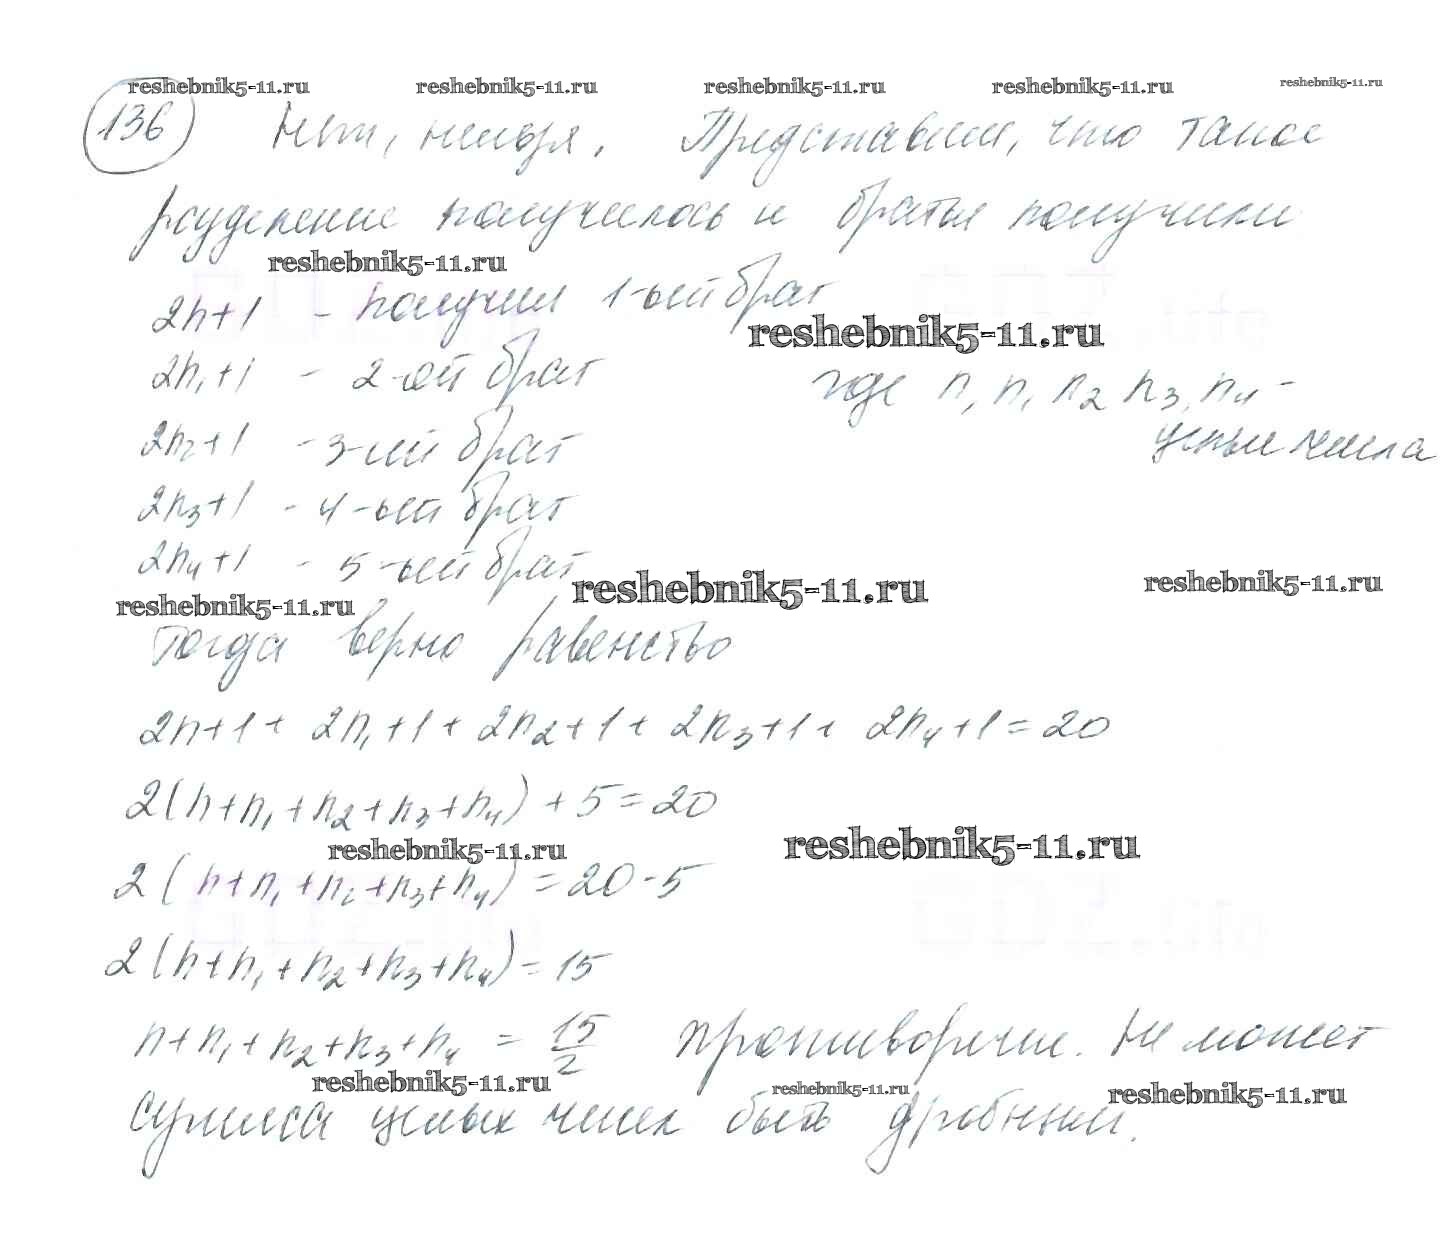 reshebnik5-11.ru reshebnik5-11.ru reshebnik5-11.ru reshebnik5-11.ru reshebnik5-11.ru
136 Нет, нельзя. Представим, что такое
получилось и братья получили
reshebnik5-11.ru
2n+1 - получил 1-ый брат
reshebnik5-11.ru
2n₁+1 - 2-ой брат где n, n₁ n₂ n₃, n₄ -
2n₂+1 - 3-ий брат целые числа
2n₃+1 - 4-ый брат
2n₄+1 - 5-ый брат
reshebnik5-11.ru reshebnik5-11.ru reshebnik5-11.ru
Тогда верно равенство
2n+1+ 2n₁+1+ 2n₂+1+ 2n₃+1+ 2n₄+1=20
2(n+n₁+n₂+n₃+n₄)+5=20
reshebnik5-11.ru reshebnik5-11.ru
2(n+n₁+n₂+n₃+n₄)=20-5
2(n+n₁+n₂+n₃+n₄)=15
n+n₁+n₂+n₃+n₄ = 15/2 противоречие. Не может
reshebnik5-11.ru reshebnik5-11.ru reshebnik5-11.ru
сумма целых чисел быть дробным.